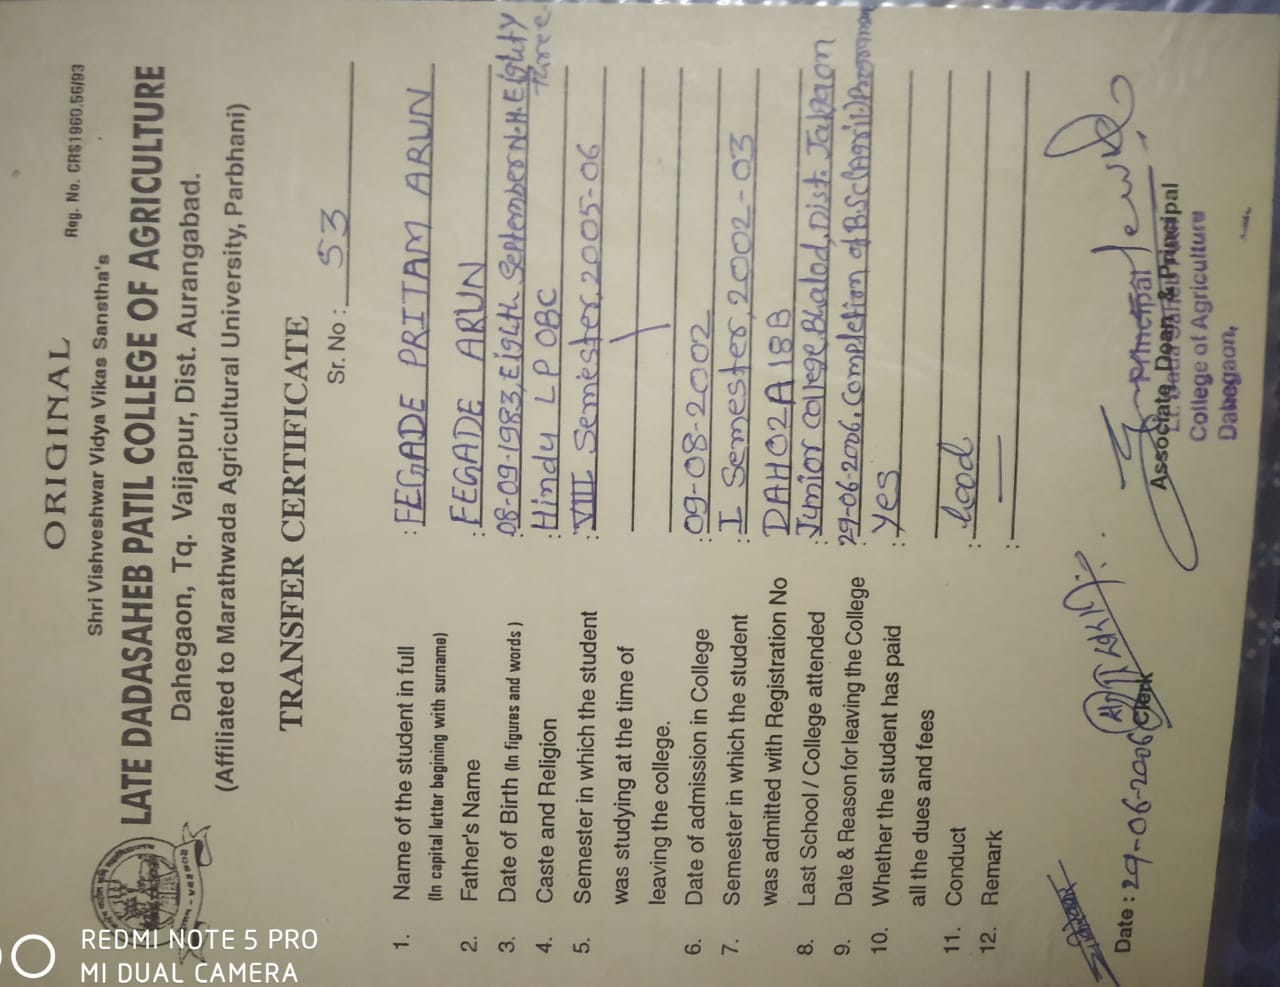 ORIGINAL
Reg. No. CRS1960.56/93
Shri Vishveshwar Vidya Vikas Sanstha's
LATE DADASAHEB PATIL COLLEGE OF AGRICULTURE
Dahegaon, Tq. Vaijapur, Dist. Aurangabad.
(Affiliated to Marathwada Agricultural University, Parbhani)
TRANSFER CERTIFICATE
Sr. No : 53
1. Name of the student in full : FEGADE PRITAM ARUN
(In capital letter begining with surname)
2. Father's Name : FEGADE ARUN
3. Date of Birth (In figures and words) : 08-09-1983, Eighth September N.H. Eighty three
4. Caste and Religion : Hindu L P OBC
5. Semester in which the student : VIII Semester, 2005-06
was studying at the time of
leaving the college.
6. Date of admission in College : 09-08-2002
7. Semester in which the student : I Semester, 2002-03
was admitted with Registration No DAH02A18B
8. Last School / College attended : Junior college, Bhalod, Dist. Jalgaon
9. Date & Reason for leaving the College : 29-06-2006, Completion of B.Sc(Agril.) Programm
10. Whether the student has paid : Yes
all the dues and fees
11. Conduct : Good
12. Remark : —
Date : 29-06-2006
Clerk
Principal
Associate Dean & Principal
College of Agriculture
Dahegaon,
REDMI NOTE 5 PRO
MI DUAL CAMERA